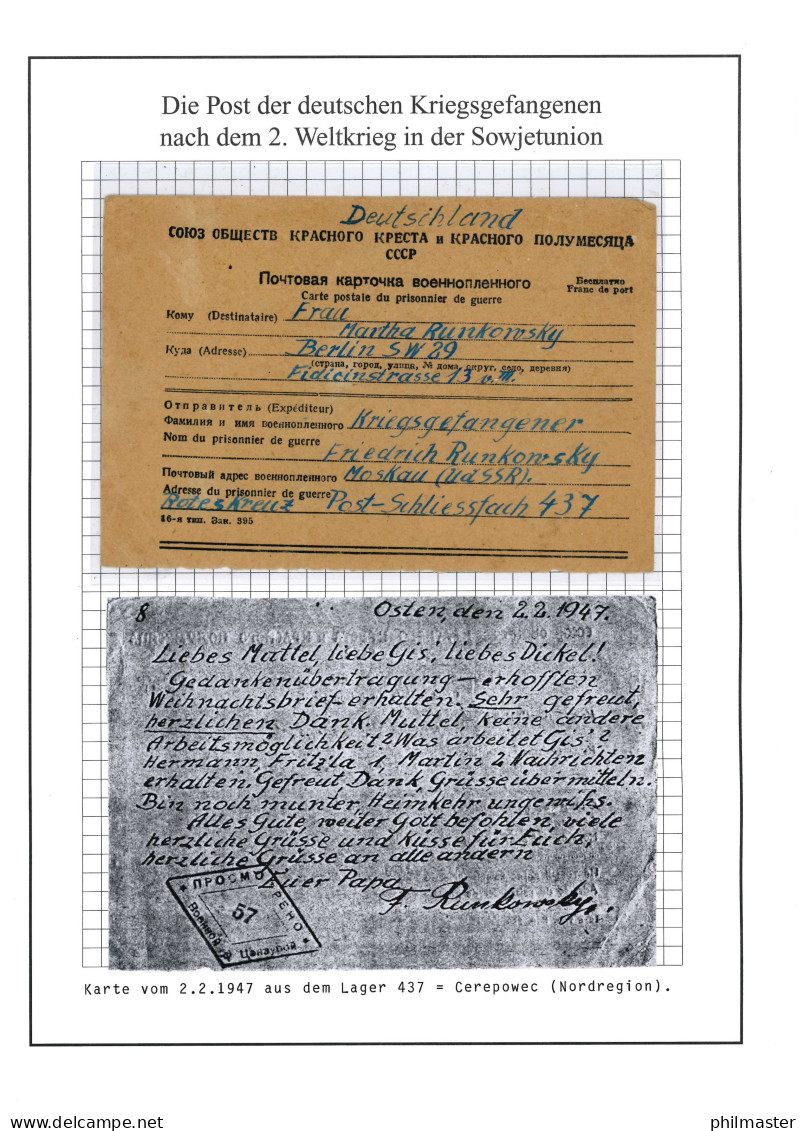 Die Post der deutschen Kriegsgefangenen
nach dem 2. Weltkrieg in der Sowjetunion
Deutschland
СОЮЗ ОБЩЕСТВ КРАСНОГО КРЕСТА и КРАСНОГО ПОЛУМЕСЯЦА
СССР
Почтовая карточка военнопленного
Бесплатно
Carte postale du prisonnier de guerre
Franc de port
Кому (Destinataire) Frau
Martha Runkowsky
Куда (Adresse) Berlin SW 29
(страна, город, улица, № дома, округ, село, деревня)
Fidicinstrasse 13 v. III.
Отправитель (Expéditeur)
Фамилия и имя военнопленного Kriegsgefangener
Nom du prisonnier de guerre
Friedrich Runkowsky
Почтовый адрес военнопленного Moskau (UdSSR).
Adresse du prisonnier de guerre Post-Schliessfach 437
Rotes Kreuz
16-я тип. Зак. 395
8 Osten, den 2.2.1947.
Liebes Muttel, liebe Gis', liebes Dickel!
Gedankenübertragung – erhofften
Weihnachtsbrief erhalten. Sehr gefreut,
herzlichen Dank. Muttel keine andere
Arbeitsmöglichkeit? Was arbeitet Gis'?
Hermann, Fritzla 1, Martin 2 Nachrichten
erhalten. Gefreut, Dank, Grüsse übermitteln.
Bin noch munter, Heimkehr ungewiss.
Alles Gute, weiter Gott befohlen, viele
herzliche Grüsse und Küsse für Euch,
herzliche Grüsse an alle andern
Euer Papa
F. Runkowsky.
ПРОСМОТРЕНО
57
Военной Цензурой
Karte vom 2.2.1947 aus dem Lager 437 = Cerepowec (Nordregion).
www.stampedia.com
philmaster